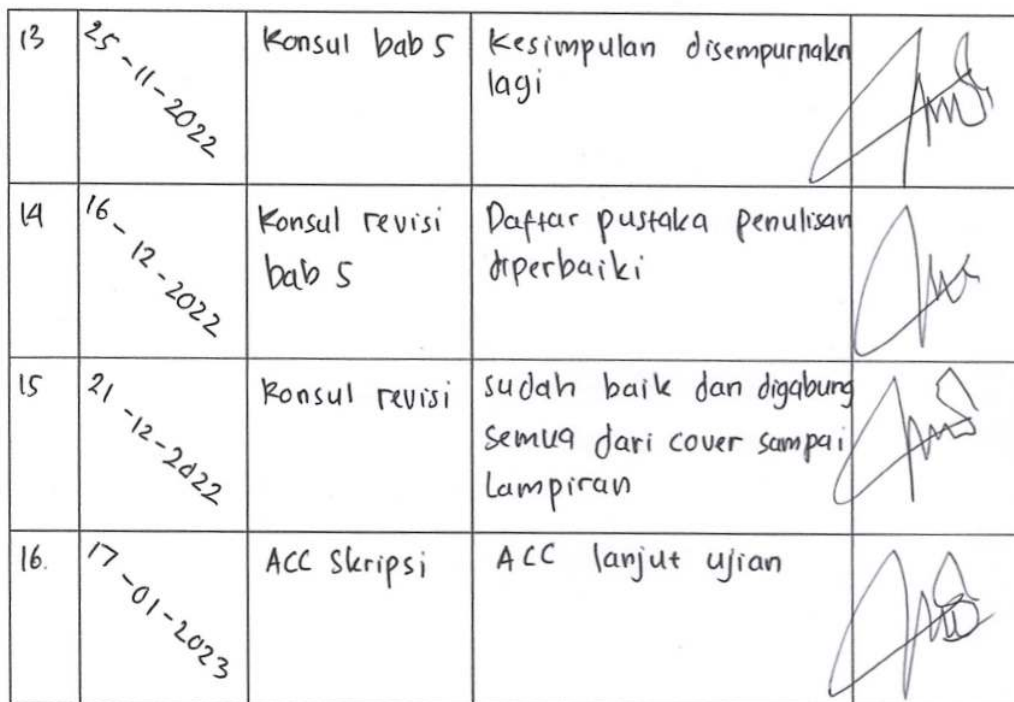 13 25-11-2022 Konsul bab 5 Kesimpulan disempurnakn
lagi
14 16-12-2022 Konsul revisi Daftar pustaka penulisan
bab 5 diperbaiki
15 21-12-2022 Konsul revisi sudah baik dan digabung
semua dari cover sampai
Lampiran
16. 17-01-2023 ACC Skripsi ACC lanjut ujian